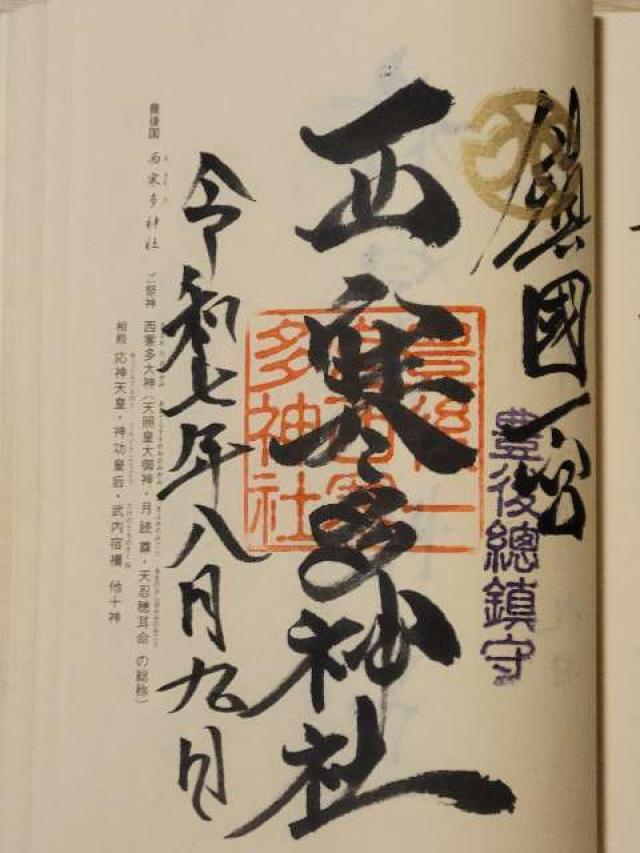 鎮國一宮
豊後總鎮守
西寒多神社
豊後一
宮西寒
多神社
令和七年八月九日
豊後国 西寒多神社 ご祭神 西寒多大神(天照皇大御神・月読尊・天忍穂耳命 の総称)
相殿 応神天皇・神功皇后・武内宿禰 他十神